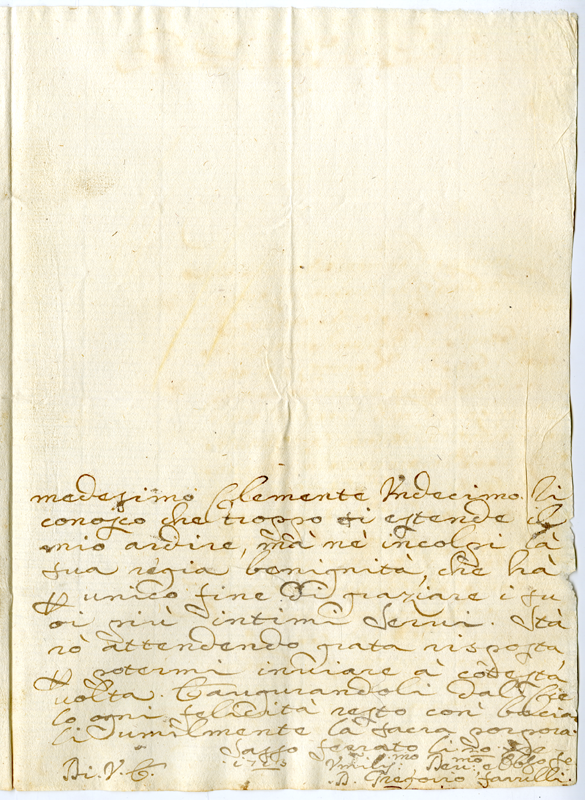 medesimo Clemente Undecimo. Ri
conosco che troppo si estende il
mio ardire, mà nè incolpi là
sua regia benignità, che hà
p unico fine di graziare i su
oi più intimi servi. Stà
rò attendendo grata risposta
p potermi inviare à cōtestà
volta. E augurandoli dal Cie
lo ogni felicità resto con bacciar
li umilmente la sacra porpora
Sasso ferrato li no:
1713
Umiliss.mo
Bi. V. E.
D. Gregorio